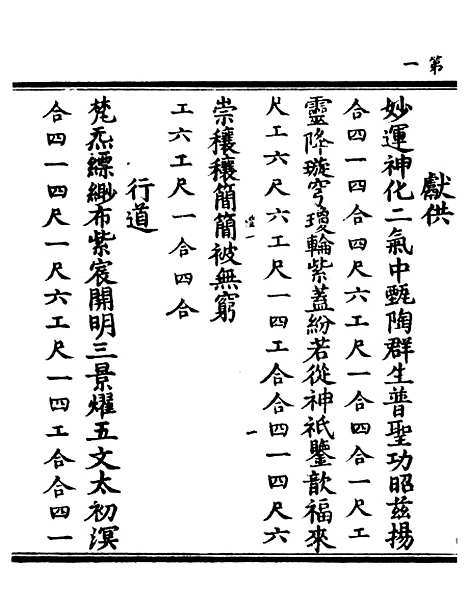 第一
獻供
妙運神化二氣中甄陶群生普聖功昭兹揚
合四一四合四尺六工尺一合四合一尺工
靈降璇穹瓊輪紫蓋紛若從神祇鑒歆福來
尺工六尺六工尺一四工合合四一四尺六
崇穰穰簡簡被無窮
工六工尺一合四合
行道
梵炁縹緲布紫宸開明三景耀五文太初溟
合四一四尺一尺六工尺一四工合合四一